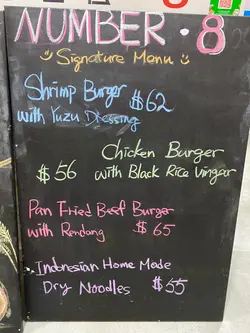 NUMBER · 8
Signature Menu
Shrimp Burger $62
with Yuzu Dressing
Chicken Burger
$56 with Black Rice Vingar
Pan Fried Beef Burger
with Rendang $65
Indonesian Home Made
Dry Noodles $55